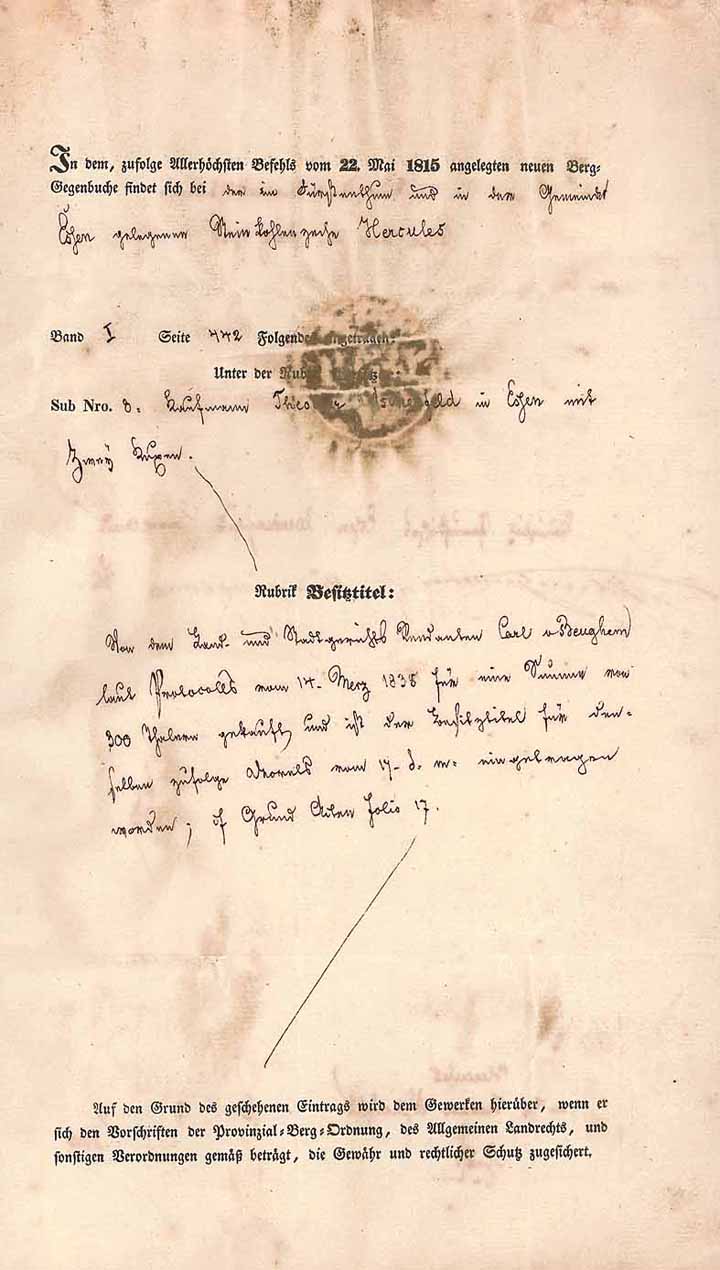 In dem, zufolge Allerhöchsten Befehls vom 22. Mai 1815 angelegten neuen Berg-
Gegenbuche findet sich bei der im Fürstenthum und in der Gemeinde
Eßen gelegenen Steinkohlenzeche Hercules
Band I Seite 442 Folgendes eingetragen:
Unter der Rubrik
Sub Nro. 8. Kaufmann in Eßen mit
Zweÿ Kuxen.
Rubrik Besitztitel:
Von dem Land- und Stadtgerichts Rendanten Carl v Beughem
laut Protocolls vom 14. Merz 1838 für eine Summe von
300 Thalern gekauft, und ist der Besitztitel für den-
selben zufolge vom 17. d. M. eingetragen
worden; cf Grund Acten Folio 17.
Auf den Grund des geschehenen Eintrags wird dem Gewerken hierüber, wenn er
sich den Vorschriften der Provinzial-Berg-Ordnung, des Allgemeinen Landrechts, und
sonstigen Verordnungen gemäß beträgt, die Gewähr und rechtlicher Schutz zugesichert.